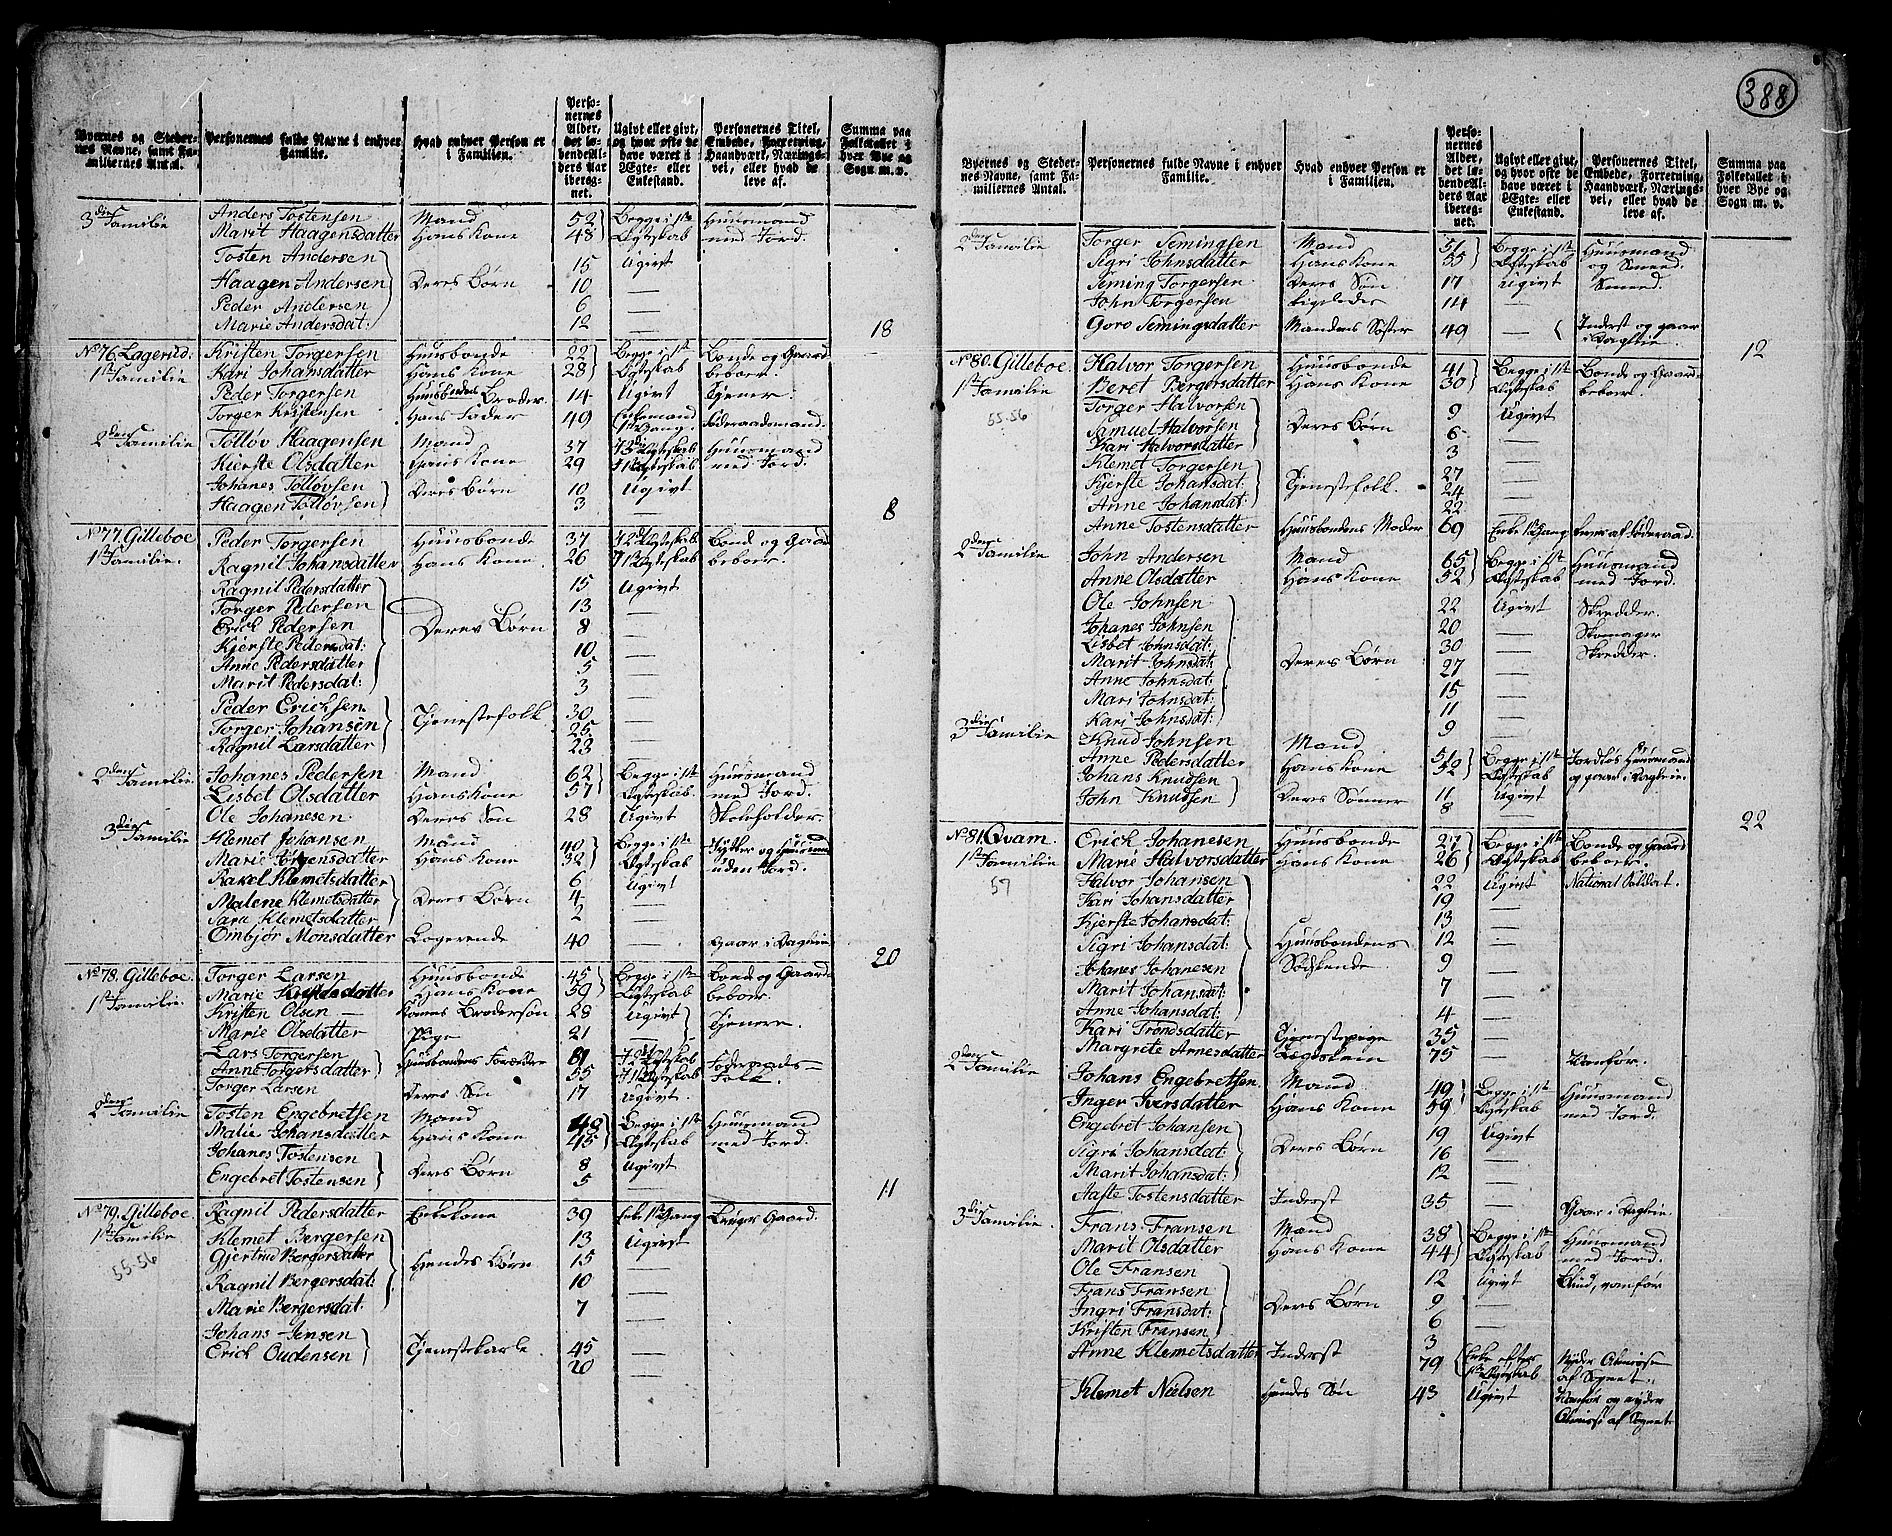 388
Byernes og Stedernes Navne, samt Familiernes Antal.
Personernes fulde Navne i enhver Familie.
Hvad enhver Person er i Familien.
Personernes Alder, det løbende Alders Aar iberegnet.
Ugivt eller givt, og hvor ofte de have været i Ægte- eller Enkestand.
Personernes Titel, Embede, Forretning, Haandværk, Næringsvei, eller hvad de leve af.
Summa paa Folketallet i hver Bye og Sogn m. v.
3die Familie Anders Tostensen Mand 52 Begge i 1ste Huusmand
Marit Haagensdatter Hans Kone 48 Ægteskab med Jord.
Tosten Andersen 15 Ugivt
Haagen Andersen Deres Børn 10 —
Peder Andersen 6 —
Marie Andersdat: 12 — 18
No 76. Lagerud. Kristen Torgersen Huusbonde 22 Begge i 1ste Bonde og Gaard
1st Familie Kari Johansdatter Hans Kone 28 Ægteskab beboer.
Peder Torgersen Huusbondens Broder. 14 Ugivt Tjener.
Torger Kristensen Hans Fader 49 Enkemand 1ste Gang. Føderaadsmand.
2den Familie Tolløv Haagensen Mand 37 Ægteskab Huusmand
Kierste Olsdatter Hans Kone 29 Ægteskab med Jord.
Johanes Tolløvsen Deres Børn 10 Ugivt
Haagen Tolløvsen 3 — 8
No 77. Gilleboe Peder Torgersen Huusbonde 37 Ægteskab Bonde og Gaard
1st Familie. Ragnil Johansdatter Hans Kone. 26 Ægteskab beboer.
Ragnil Pedersdatter 15 Ugivt
Torger Pedersen 13 —
Erick Pedersen Deres Børn 8 —
Kjerste Pedersdat: 10 —
Anne Pedersdatter 5 —
Marit Pedersdat: 3 —
Peder Ericksen 30 —
Torger Johansen Tjenestefolk 25 —
Ragnil Larsdatter 23 —
2den Familie Johanes Pedersen Mand 62 Begge i 1ste Huusmand
Lisbet Olsdatter Hans Kone 57 Ægteskab. med Jord.
Ole Johanesen Deres Søn 28 Ugivt Skoleholder.
3die Familie Klemet Johansen Mand 40 Begge i 1ste
Marie Hans Kone 32 Ægteskab uden Jord.
Rakel Klemetsdatter 6 Ugivt
Malene Klemetsdatter Deres Børn 4 —
Sara Klemetsdatter 2 —
Ombjør Monsdatter Logerende 40 — gaar i Dagleie 20
No 78. Gilleboe. Torger Larsen Huusbonde 45 Begge i 1ste Bonde og Gaard
1st Familie. Marie Kristensdatter Hans Kone 59 Ægteskab beboer.
Kristen Olsen — Konens Brodersøn 28 Ugivt
Marie Olsdatter Pige 21 — Tjenere.
Lars Torgersen Huusbondens Forældre 81 Ægteskab Føderaads=
Anne Torgersdatter 55 Ægteskab Folk.
Torger Larsen Deres Søn 17 Ugivt.
2den Familie Tosten Engebretsen Mand 48 Begge i 1ste Huusmand
Malie Johansdatter Hans Kone 45 Ægteskab med Jord.
Johanes Tostensen Deres Børn 8 Ugivt
Engebret Tostensen 5 — 11
No 79. Gilleboe. Ragnil Pedersdatter Enkekone 39 Enke 1ste Gang Bruger Gaard.
1st Familie Klemet Bergersen 13 Ugivt
Gjertrud Bergersdatter Hendes Børn 15 —
55-56 Ragnil Bergersdat: 10 —
Marie Bergersdat: 7 —
Johans Jensen Tjenestekarle 45 —
Erick Oudensen 20 —
Byernes og Stedernes Navne, samt Familiernes Antal.
Personernes fulde Navne i enhver Familie.
Hvad enhver Person er i Familien.
Personernes Alder, det løbende Alders Aar iberegnet.
Ugivt eller givt, og hvor ofte de have været i Ægte- eller Enkestand.
Personernes Titel, Embede, Forretning, Haandværk, Næringsvei, eller hvad de leve af.
Summa paa Folketallet i hver Bye og Sogn m. v.
2den Familie Torger Semingsen Mand 51 Begge i 1ste Huusmand
Sigri Johnsdatter Hans Kone 55 Ægteskab og Smed.
Seming Torgersen Deres Søn 17 Ugivt Smed.
John Torgersen Ligeledes 14 —
Goro Semingsdatter Mandens Søster 49 — Inderst og gaar i Dagleie. 12
No 80. Gilleboe. Halvor Torgersen Huusbonde 41 Begge i 1ste Bonde og Gaard
1st Familie Beret Bergersdatter Hans Kone 30 Ægteskab beboer.
55-56 Torger Halvorsen 9 Ugivt
Samuel Halvorsen Deres Børn 6 —
Kari Halvorsdatter 3 —
Klemet Torgersen 27 —
Kjerste Johansdat: Tjenestefolk. 24 —
Anne Johansdat: 22 —
Anne Tostensdatter Huusbondens Moder 69 Enke 1ste Gang lever af Føderaad.
2den Familie John Andersen Mand 65 Begge i 1ste Huusmand
Anne Olsdatter Hans Kone 52 Ægteskab med Jord.
Ole Johnsen 22 Ugivt Skredder.
Johanes Johnsen 20 — Skomager
Lisbet Johnsdat: 30 — Skredder.
Marit Johnsdat: Deres Børn 27 —
Anne Johnsdat: 15 —
Mari Johnsdat: 11 —
Kari Johnsdat: 9 —
3die Familie Knud Johnsen Mand 51 Begge i 1ste Jordløs Huusmand
Anne Pedersdatter Hans Kone 52 Ægteskab og gaar i Dagleie.
Johans Knudsen Deres Sønner 11 Ugivt
John Knudsen 8 — 22
No 81. Qvam. Erick Johanesen Huusbonde 27 Begge i 1ste Bonde og Gaard
1st Familie Marie Halvorsdatter Hans Kone 26 Ægteskab beboer.
57 Halvor Johansen 22 Ugivt National Soldat.
Kari Johansdatter 19 —
Kjerste Johansdat: 13 —
Sigri Johansdat: Huusbondens 12 —
Johanes Johanesen Sødskende 9 —
Marit Johansdat: 7 —
Anne Johansdat: 4 —
Kari Tronsdatter Tjenestepige 35 —
Margrete Arnesdatter Lægdslem 75 — Vanfør.
2den Familie Johans Engebretsen. Mand 49 Begge i 1ste Huusmand
Inger Iversdatter Hans Kone 59 Ægteskab med Jord.
Engebret Johansen 19 Ugivt
Sigri Johansdat: Deres Børn 16 —
Marit Johansdat: 12 —
Aaste Tostensdatter Inderst 35 — Gaar i Dagleie.
3die Familie. Frans Fransen Mand 38 Begge i 1ste Huusmand
Marit Olsdatter Hans Kone 44 Ægteskab med Jord.
Ole Fransen 12 Ugivt Blind, vanfør
Frans Fransen Deres Børn 9 —
Ingri Fransdat: 6 —
Kristen Fransen 3 —
Anne Klemetsdatter Inderst 79 Enke efter 1ste Ægteskab Nyder Almisse af Sognet.
Klemet Nielsen Hendes Søn 43 Ugivt Vanfør og nyder Almisse af Sognet